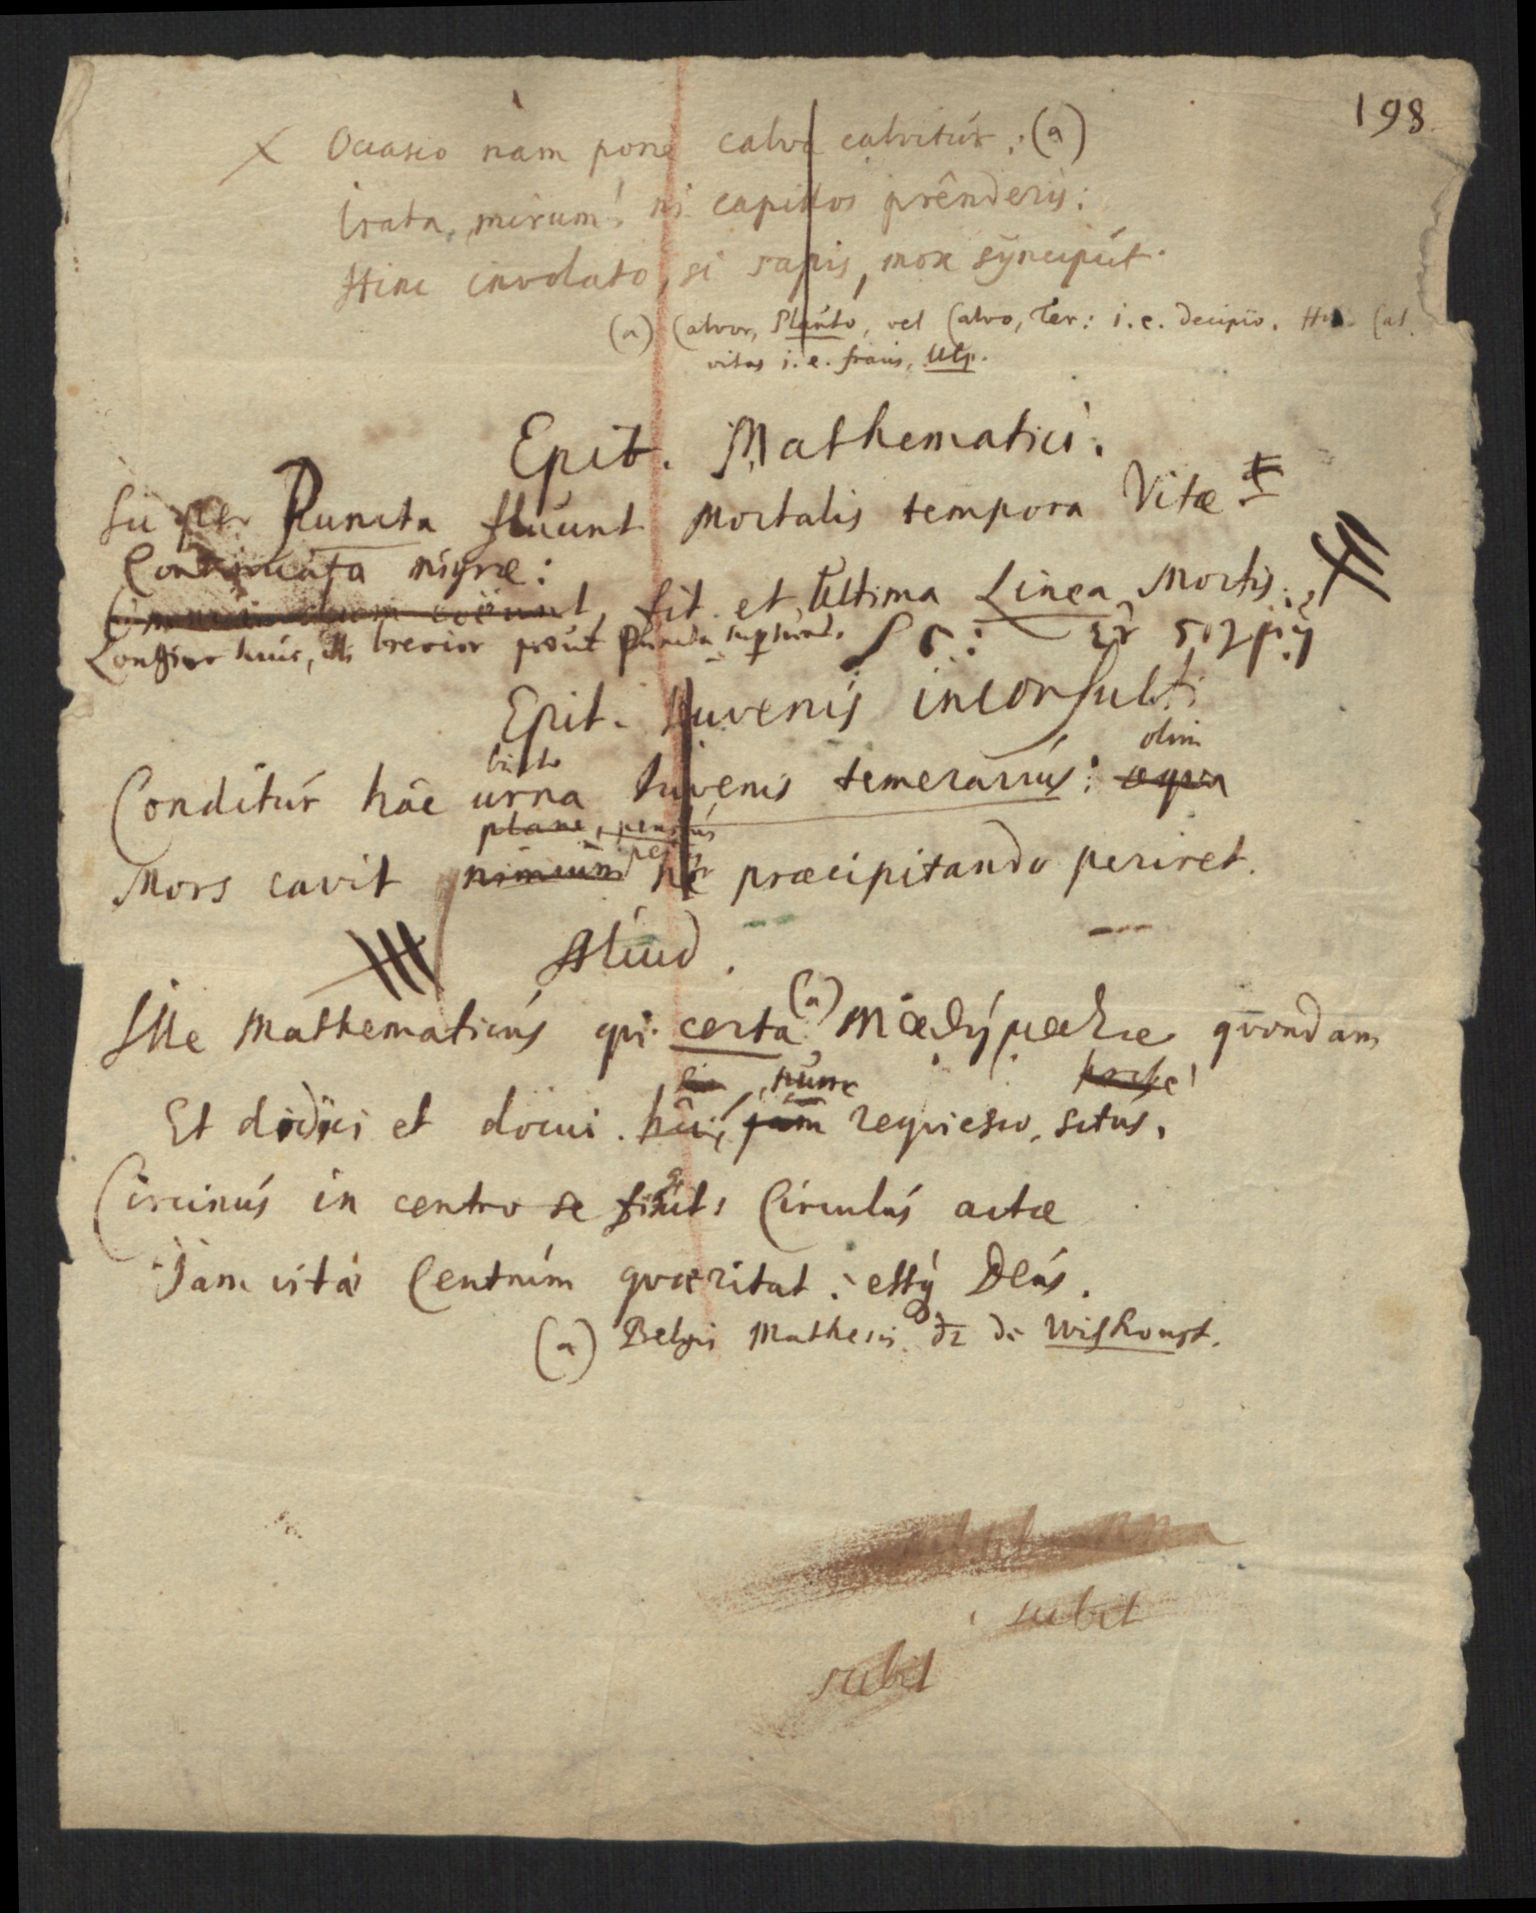 198
X Occasio nam pone calva calvitúr. (a)
Irata, mirum! ni capillos prênderis:
Hinc involato, si sapis, mox sÿnciput.
(a) Calvor, Plauto, vel Calvo, Ter: i.e. decipio. Hinc Cal
vitas i.e. fraus, Ulp.
Epit. Mathematici.
Super Puncta fluunt Mortalis tempora Vitæ
Continuata nigræ:
fit et Ultima Linea Mortis.
Longior huic, illi brevior prout Puncta
Epit. Juvenis inconsulti
busto olim
Conditúr hâc urna Juvenis temerariús: æqva
plane, penitus
Mors cavit nimium ne præcipitando periret.
Aliud.
Ille Mathematicús qvi certa (a) qvondam
nunc
Et didici et docui. hîc, jam reqviesco, sitús,
Circinús in centro se Circulús actæ
Jam vitæ Centrúm qværitat: estq́ Deús.
(a) Belgis Mathesis de Wiskonst.
subit
subit